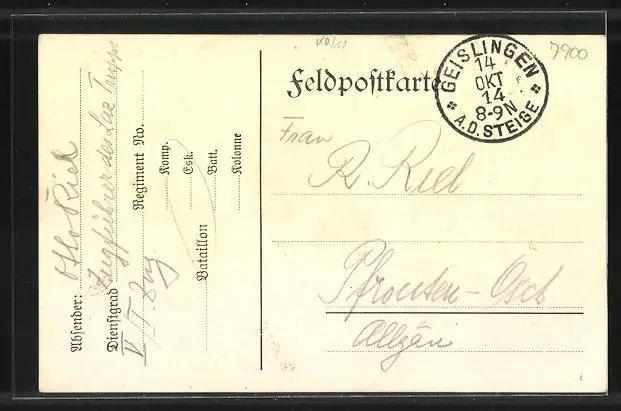 KD/11
7900
Feldpostkarte
GEISLINGEN
14
OKT
14
8-9N
A.D. STEIGE
Frau
R. Riel
Pfronten-Ösch
Allgäu
Absender: Otto Riel
Dienstgrad Zugführer des Laz. Trupps
Regiment No.
V/I. Bay.
Komp.
Esk.
Bataillon
Batt.
Kolonne